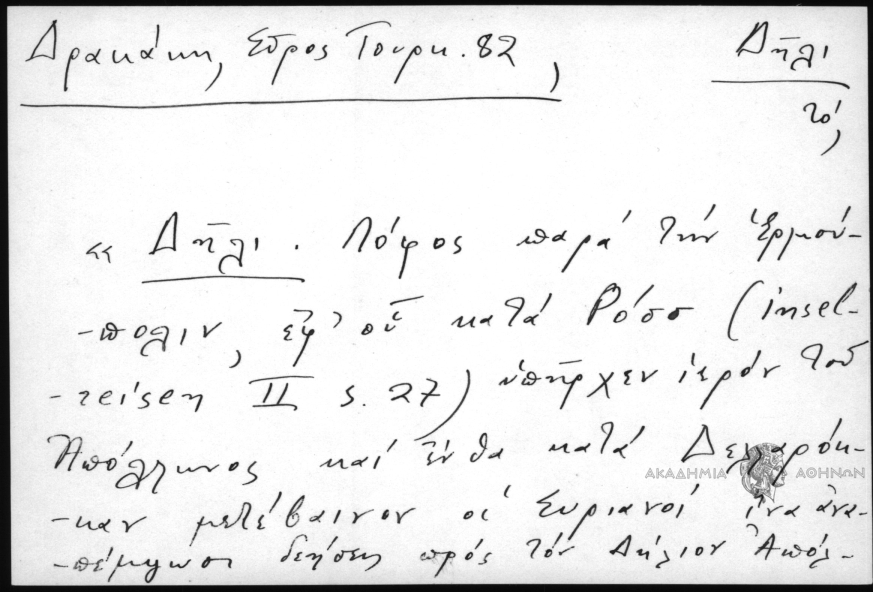 Δρακάκη, Σῦρος Τουρκ. 82,
Δῆλι
τό,
«Δῆλι. Λόφος παρά τήν Ἑρμού-
-πολιν, ἐφ' οὗ κατά Ρόσσ (insel-
-reisen II s. 27) ὑπῆρχεν ἱερόν τοῦ
Ἀπόλλωνος καί ἔνθα κατά Δελλαρόκ-
ΑΚΑΔΗΜΙΑ ΑΘΗΝΩΝ
-καν μετέβαινον οἱ Συριανοί ἵνα ἀνα-
-πέμψωσι δεήσεις πρός τόν Δήλιον Ἀπόλ-